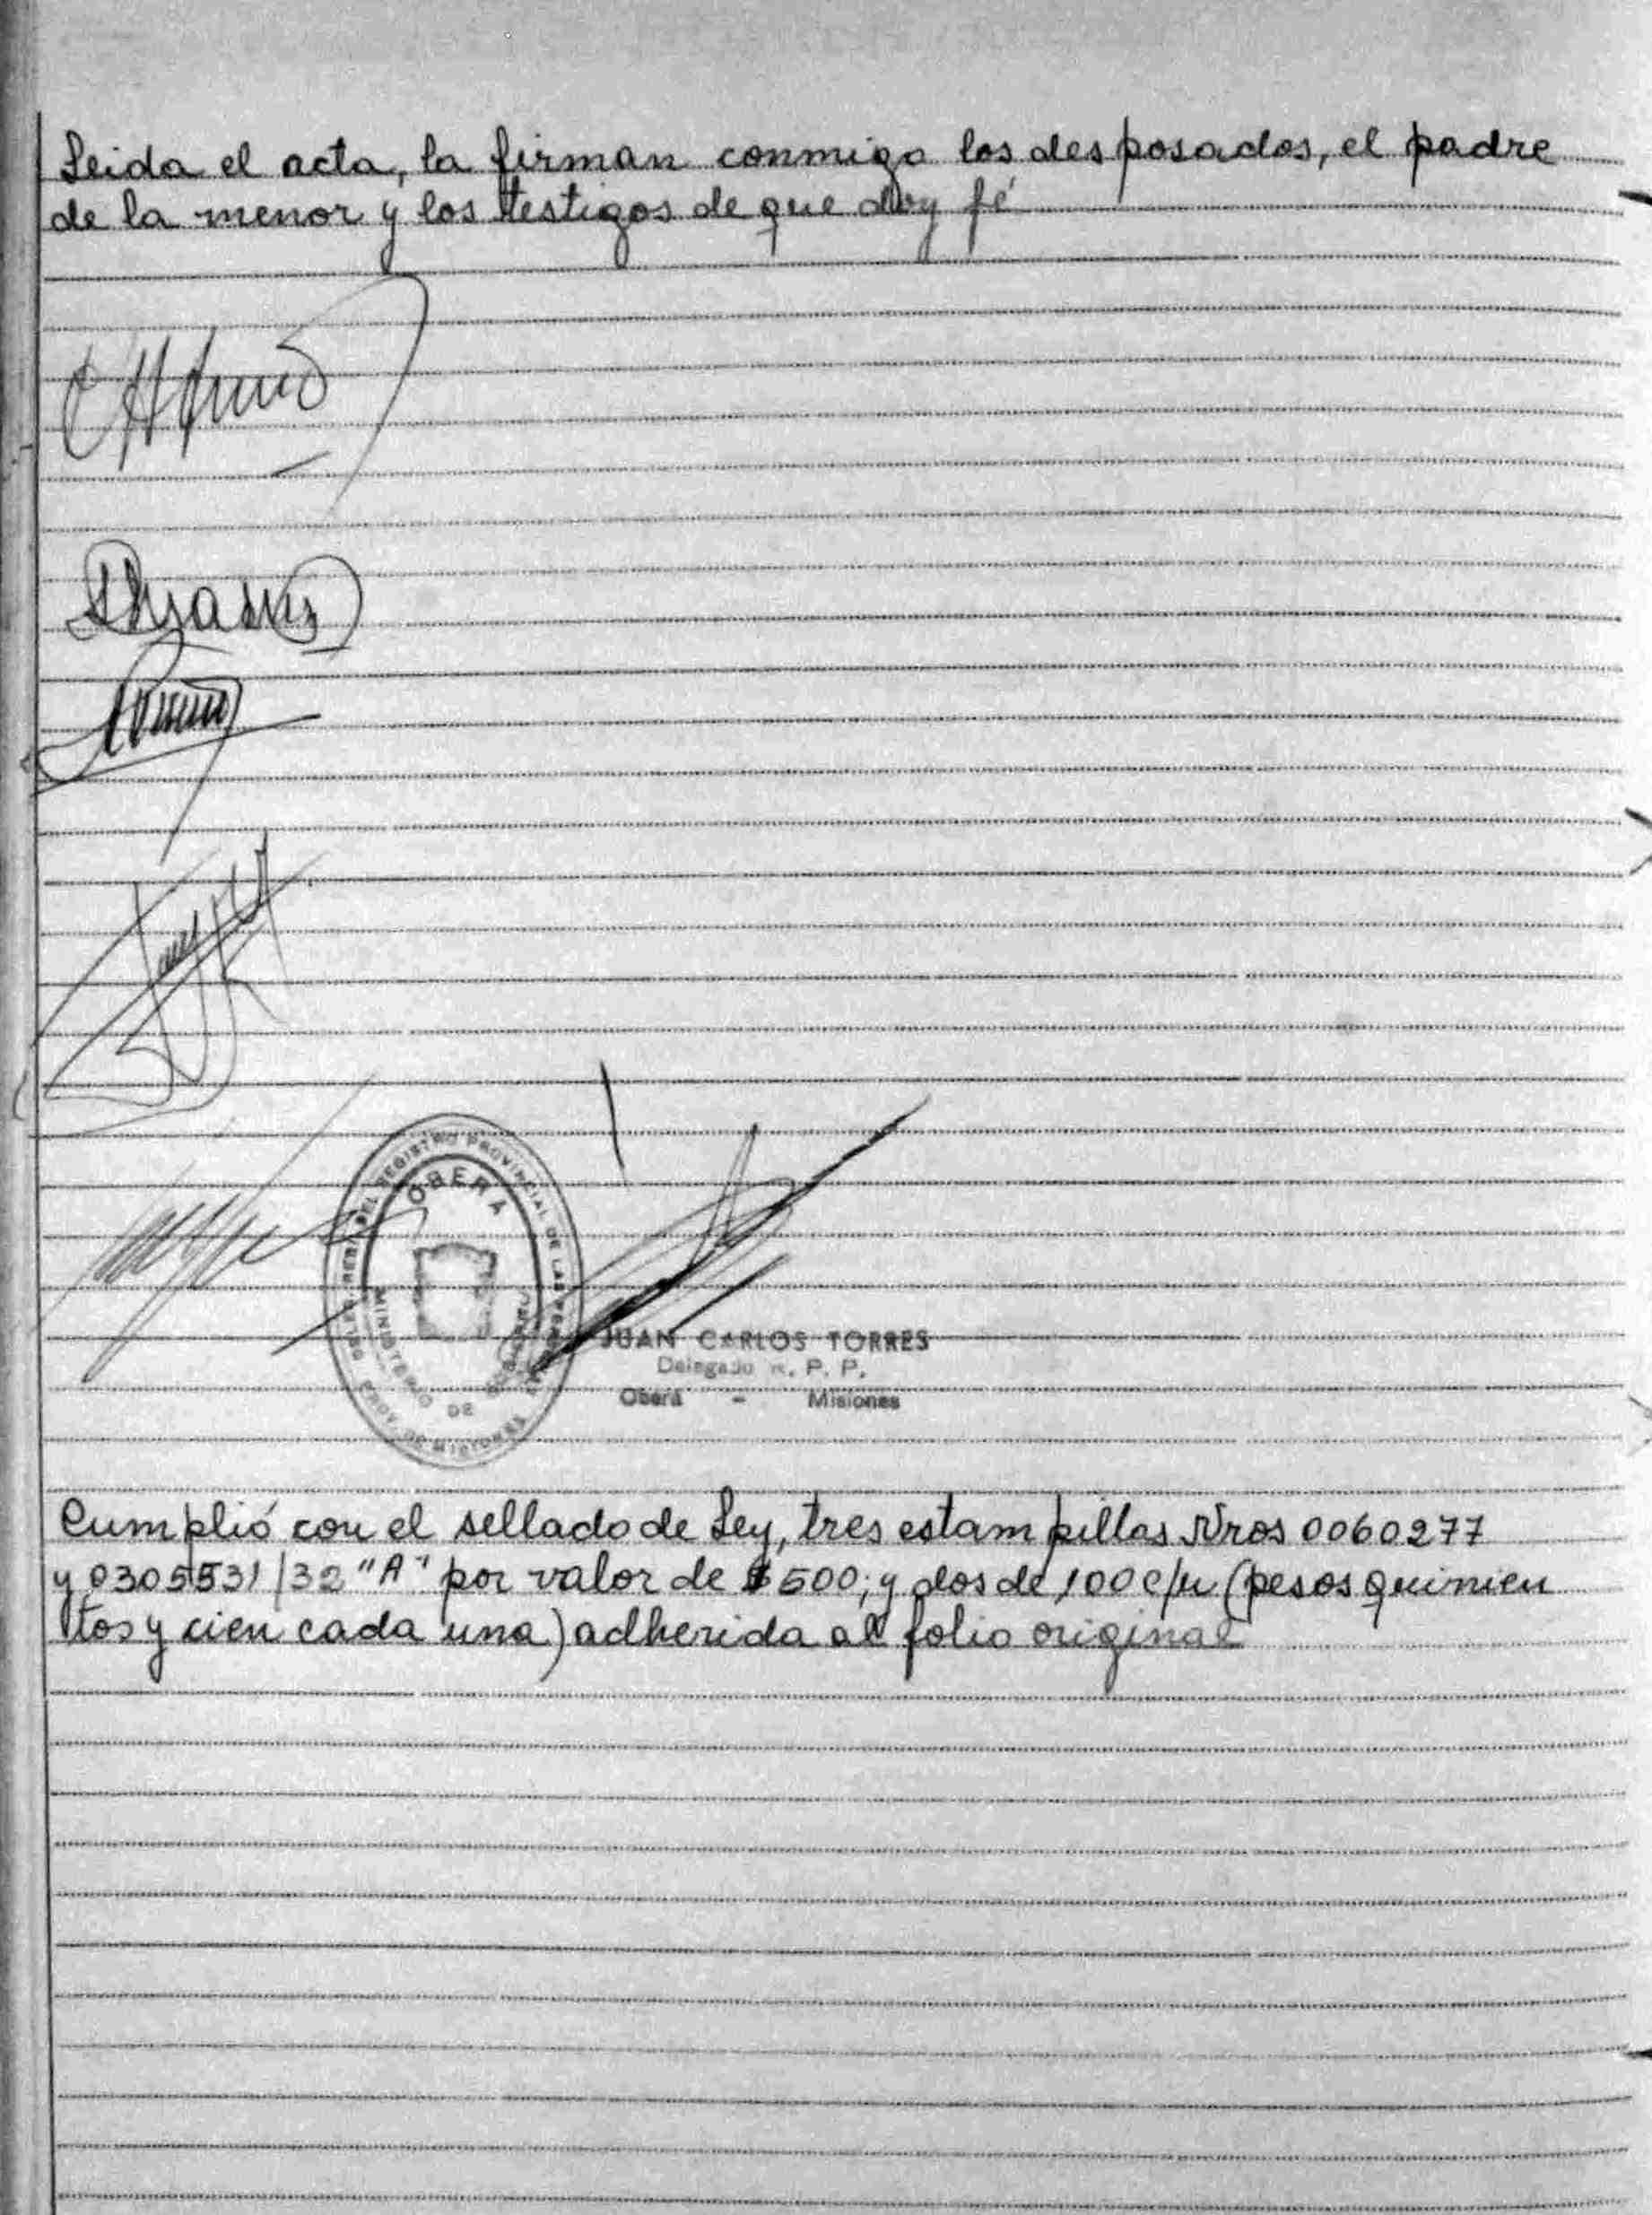 Leida el acta, la firman conmigo los desposados, el padre
de la menor y los testigos de que doy fé
DEL REGISTRO PROVINCIAL DE LAS
OBERA
MINISTERIO DE GOBIERNO
PROV. DE MISIONES
JUAN CARLOS TORRES
Delegado R. P. P.
Oberá - Misiones
Cumplió con el sellado de Ley, tres estampillas Nros 0060277
y 0305531/32 "A" por valor de $500; y dos de 100 c/u (pesos quinien
tos y cien cada una) adherida al folio original